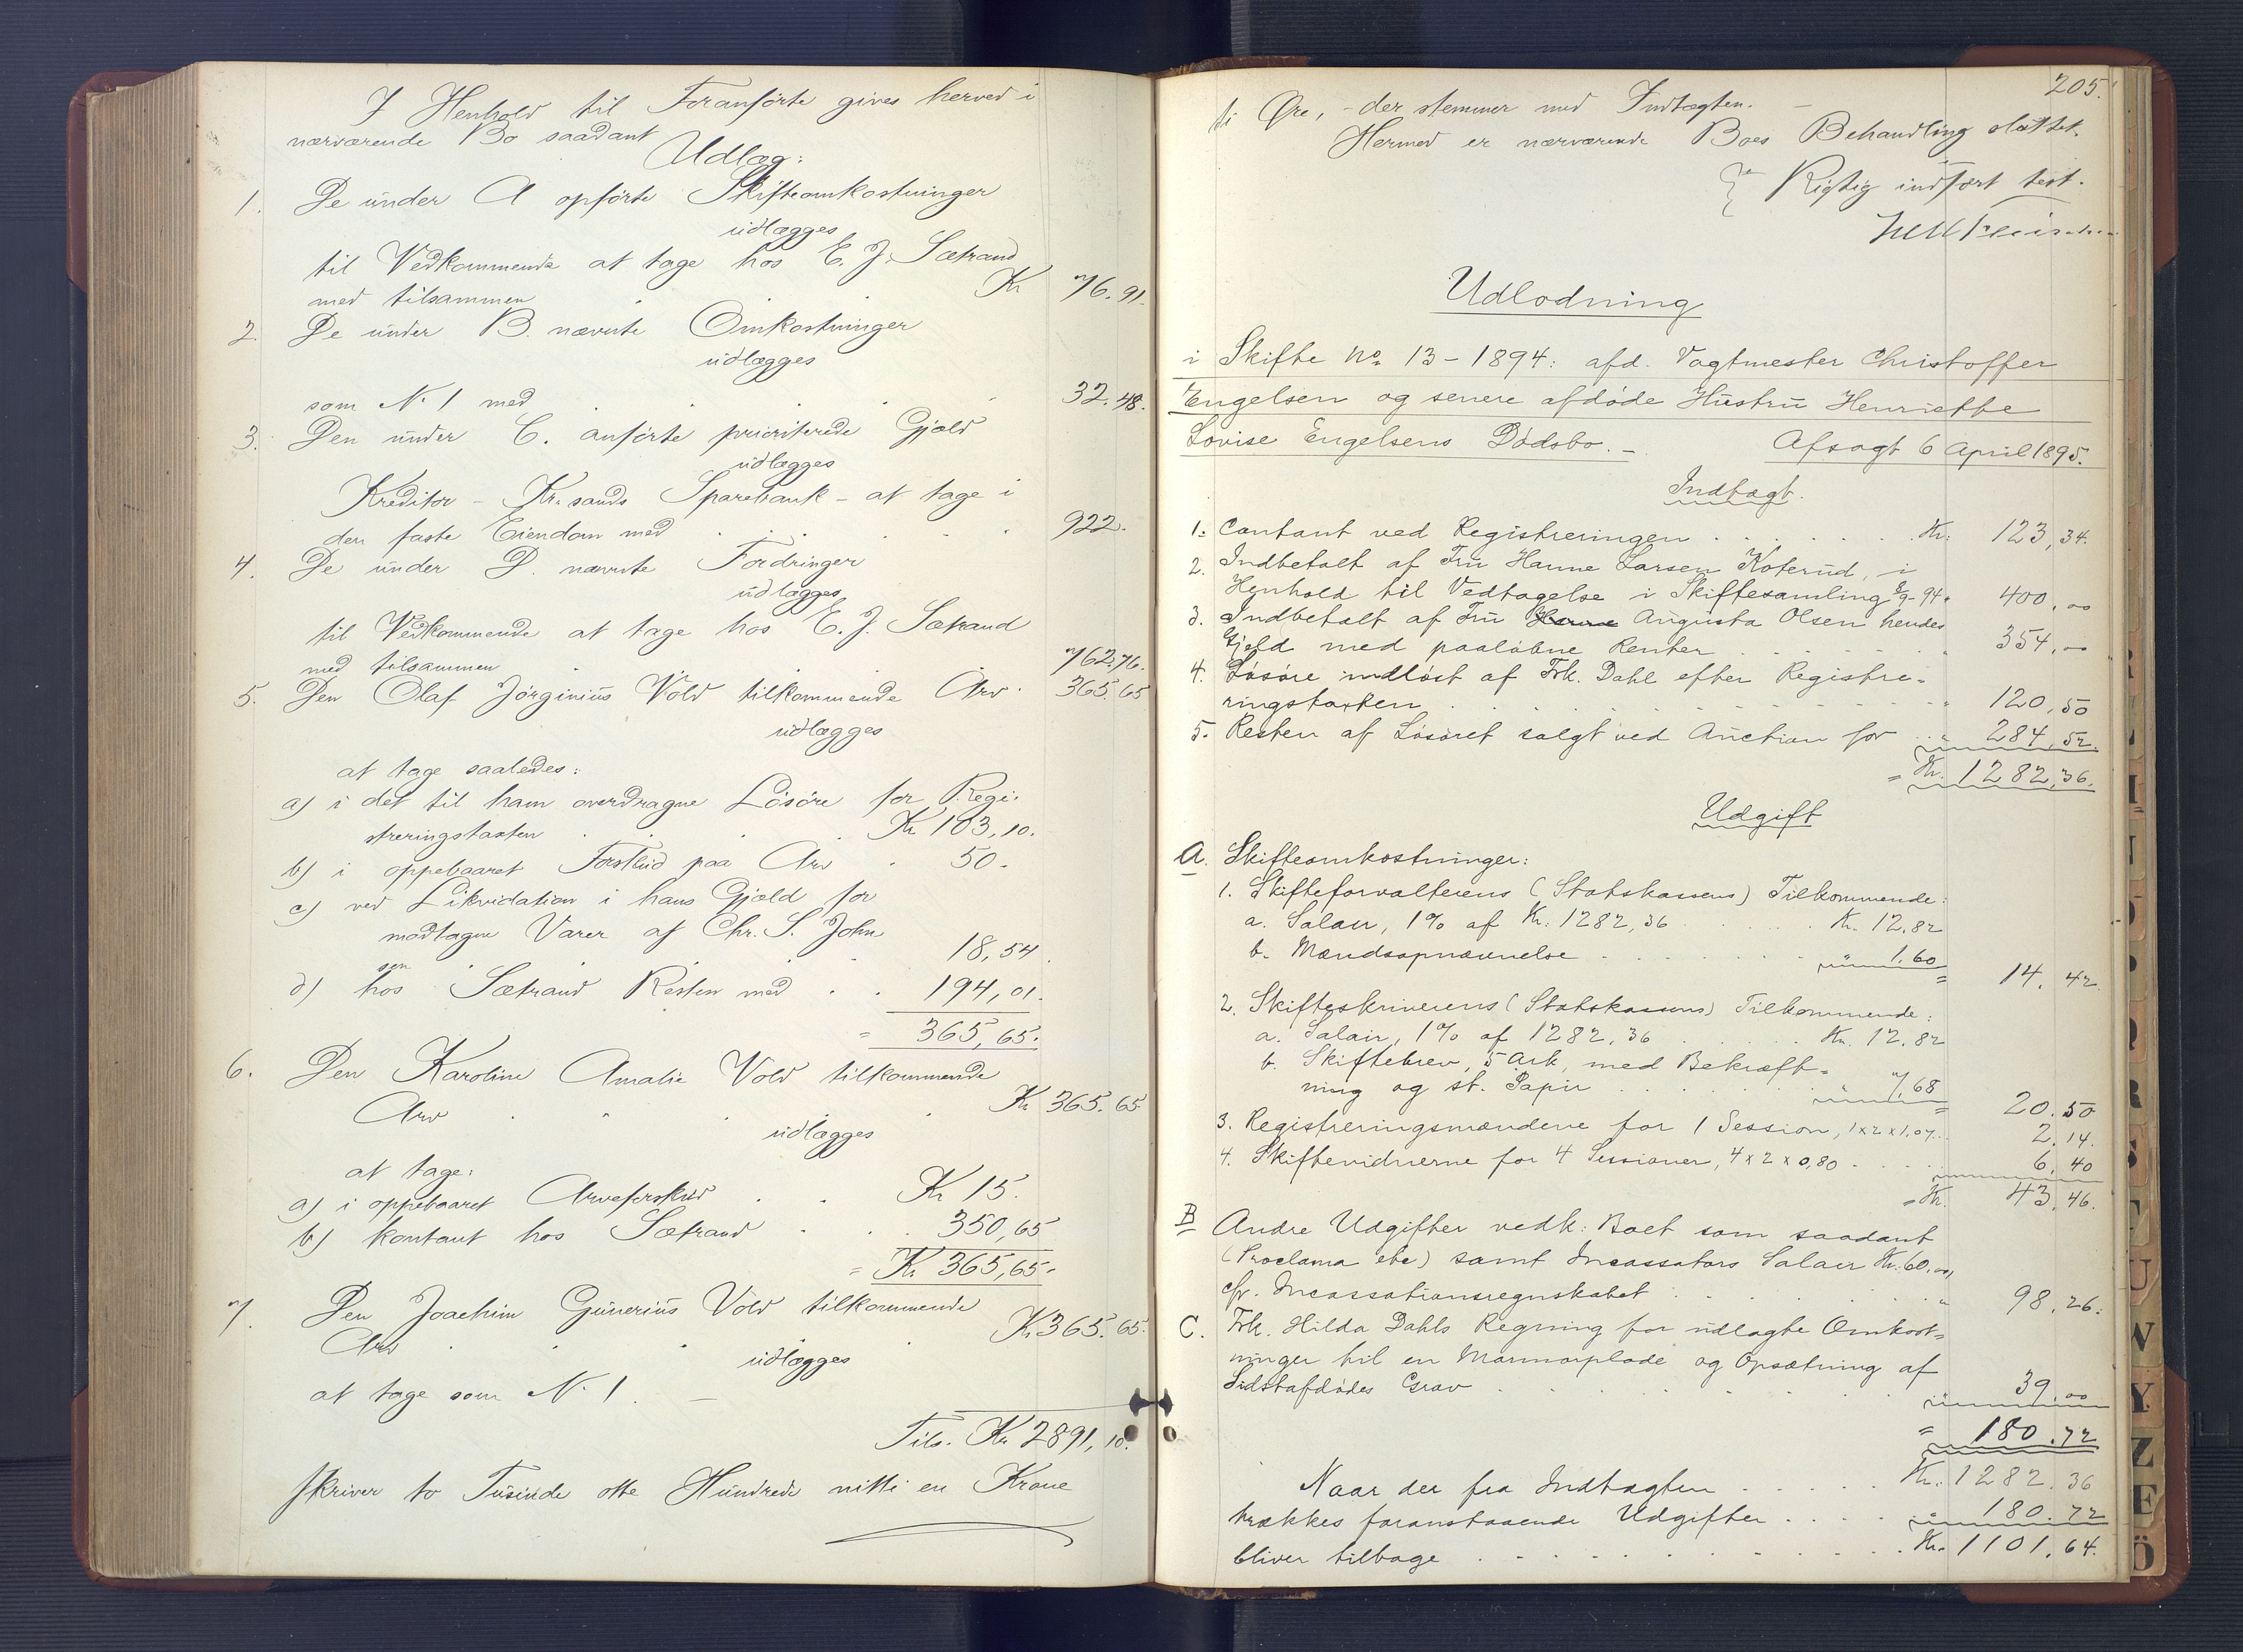 I Henhold til Foranförte gives herved i
nærværende Bo saadant
Udlæg:
1. De under A opförte Skifteomkostninger
udlægges
til Vedkommende at tage hos E. J. Sætrand
med tilsammen . . . Kr 76.91.
2. De under B. nævnte Omkostninger
udlægges
som No 1 med . . . . 32.48.
3. Den under C. anförte prioriterede Gjæld
udlægges
Kreditor - Kr.sands Sparebank - at tage i
den faste Eiendom med . . . . . 922.
4. De under D. nævnte Fordringer
udlægges
til Vedkommende at tage hos E. J. Sætrand
med tilsammen . . . 762.76.
5. Den Olaf Jörginius Vold tilkommende Arv . 365.65
udlægges
at tage saaledes:
a) i det til ham overdragne Lösöre for Regi-
streringstaxten . . . Kr 103,10.
b) i oppebaaret Forskud paa Arv . 50.
c) ved Likvidation i hans Gjæld for
modtagne Varer af Chr. S. John
sen . . . 18,54.
d) hos Sætrand Resten med . . 194,01.
= 365,65.
6. Den Karoline Amalie Vold tilkommende
Arv . . . Kr 365.65
udlægges
at tage:
a) i oppebaaret Arveforskud . . Kr 15.
b) kontant hos Sætrand . . 350,65
= Kr 365,65.
7. Den Joachim Gunerius Vold tilkommende
Arv . . . Kr 365.65.
udlægges
at tage som No 1. -
Tils. Kr 2891,10.
skriver to Tusinde otte Hundrede nitti en Krone
205.
ti Øre, - der stemmer med Indtægten. -
Hermed er nærværende Boes Behandling sluttet.
Rigtig indfört test.
Udlodning
i Skifte No 13-1894: afd. Vagtmester Christoffer
Engelsen og senere afdöde Hustru Henriette
Lovise Engelsens Dödsbo. - Afsagt 6 April 1895.
Indtægt.
1. Contant ved Registreringen . . . . . . Kr. 123,34.
2. Indbetalt af Fru Hanne Larsen Koterud, i
Henhold til Vedtagelse i Skiftesamling 8/9-94. 400,00
3. Indbetalt af Fru Hanne Augusta Olsen hendes
Gjeld med paalöbne Renter . . . . . " 354,00
4. Lösöre indlöst af Frk. Dahl efter Registre-
ringstaxten . . . . . . . . " 120,50
5. Resten af Lösöret solgt ved Auction for . " 284,52.
= Kr. 1282,36.
Udgift
A. Skifteomkostninger:
1. Skifteforvalterens (Statskassens) Tilkommende:
a. Salair, 1% af Kr. 1282,36 . . . . Kr. 12.82
b. Mændsopnævnelse . . . . . . " 1.60
= 14.42
2. Skifteskriverens (Statskassens) Tilkommende:
a. Salair, 1% af 1282,36 . . . . Kr. 12.82
b. Skiftebrev, 5 Ark, med Bekræft-
ning og st. Papir . . . . . . " 7.68
= 20.50
3. Registreringsmændene for 1 Session, 1x2x1.07.. 2.14.
4. Skiftevidnerne for 4 Sessioner, 4x2x0,80 . . . 6.40
= Kr. 43.46.
B Andre Udgifter vedk: Boet som saadant
(Proclama etc) samt Incassators Salair Kr. 60.00,
cfr. Incassationsregnskabet . . . . . . " 98.26.
C. Frk. Hilda Dahls Regning for udlagte Omkost-
ninger til en Marmorplade og Opsætning af
Sidstafdödes Grav . . . . . . " 39.00
= 180.72
Naar der fra Indtægten . . . . . Kr. 1282.36
trækkes foranstaaende Udgifter . . . . " 180.72
bliver tilbage . . . . . . . . . Kr. 1101.64.